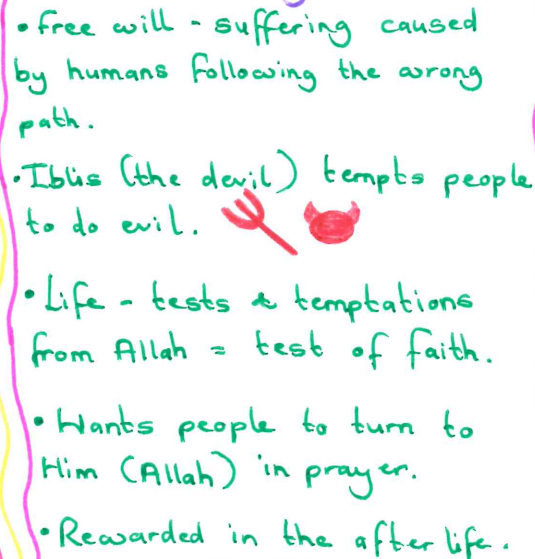 • Free will - suffering caused
by humans following the wrong
path.
• Iblis (the devil) tempts people
to do evil.
• Life - tests & temptations
from Allah = test of faith.
• Wants people to turn to
Him (Allah) in prayer.
• Rewarded in the after life.